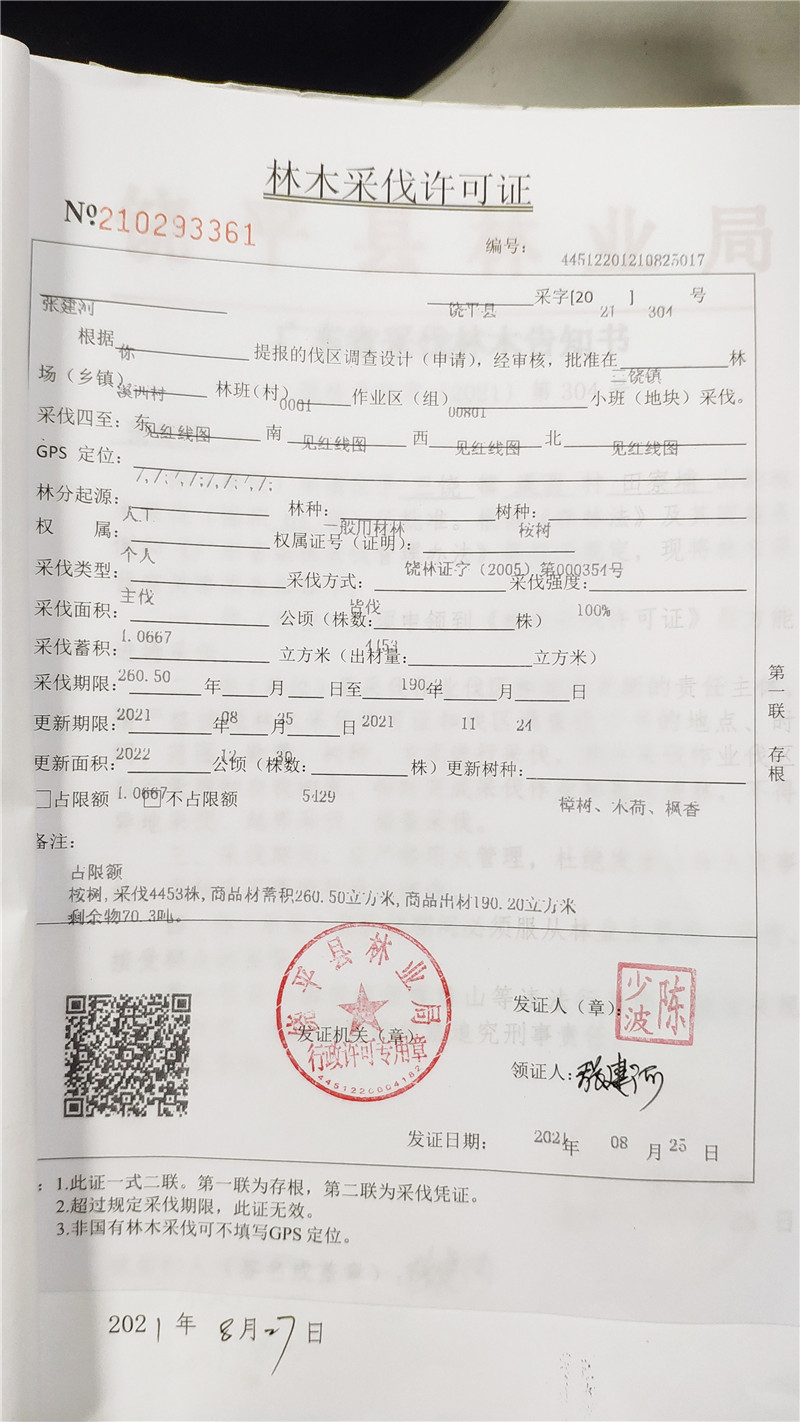 林木采伐许可证
№210293361
编号: 44512201210825017
张建河 饶平县 采字[2021] 304 号
根据 你 提报的伐区调查设计(申请),经审核,批准在 三饶镇 林
场(乡镇) 溪西村 林班(村) 0001 作业区(组) 00801 小班(地块)采伐。
采伐四至: 东 见红线图 南 见红线图 西 见红线图 北 见红线图
GPS 定位: /,/;/,/;/,/;/,/;
林分起源: 人工 林种: 一般用材林 树种: 桉树
权 属: 个人 权属证号(证明): 饶林证字(2005)第000354号
采伐类型: 主伐 采伐方式: 皆伐 采伐强度: 100%
采伐面积: 1.0667 公顷(株数: 4453 株)
采伐蓄积: 260.50 立方米(出材量: 190.2 立方米)
采伐期限: 2021 年 08 月 25 日至 2021 年 11 月 24 日
更新期限: 2022 年 12 月 30 日
更新面积: 1.0667 公顷(株数: 5429 株)更新树种: 樟树、木荷、枫香
□占限额 □不占限额
备注:
占限额
桉树,采伐4453株,商品材蓄积260.50立方米,商品出材190.20立方米
剩余物70.3吨。
第一联 存根
饶平县林业局
行政许可专用章
4451220004182
发证机关(章)
发证人(章):
陈少波
领证人: 张建河
发证日期: 2021 年 08 月 25 日
: 1.此证一式二联。第一联为存根,第二联为采伐凭证。
2.超过规定采伐期限,此证无效。
3.非国有林木采伐可不填写GPS 定位。
2021 年 8月27日